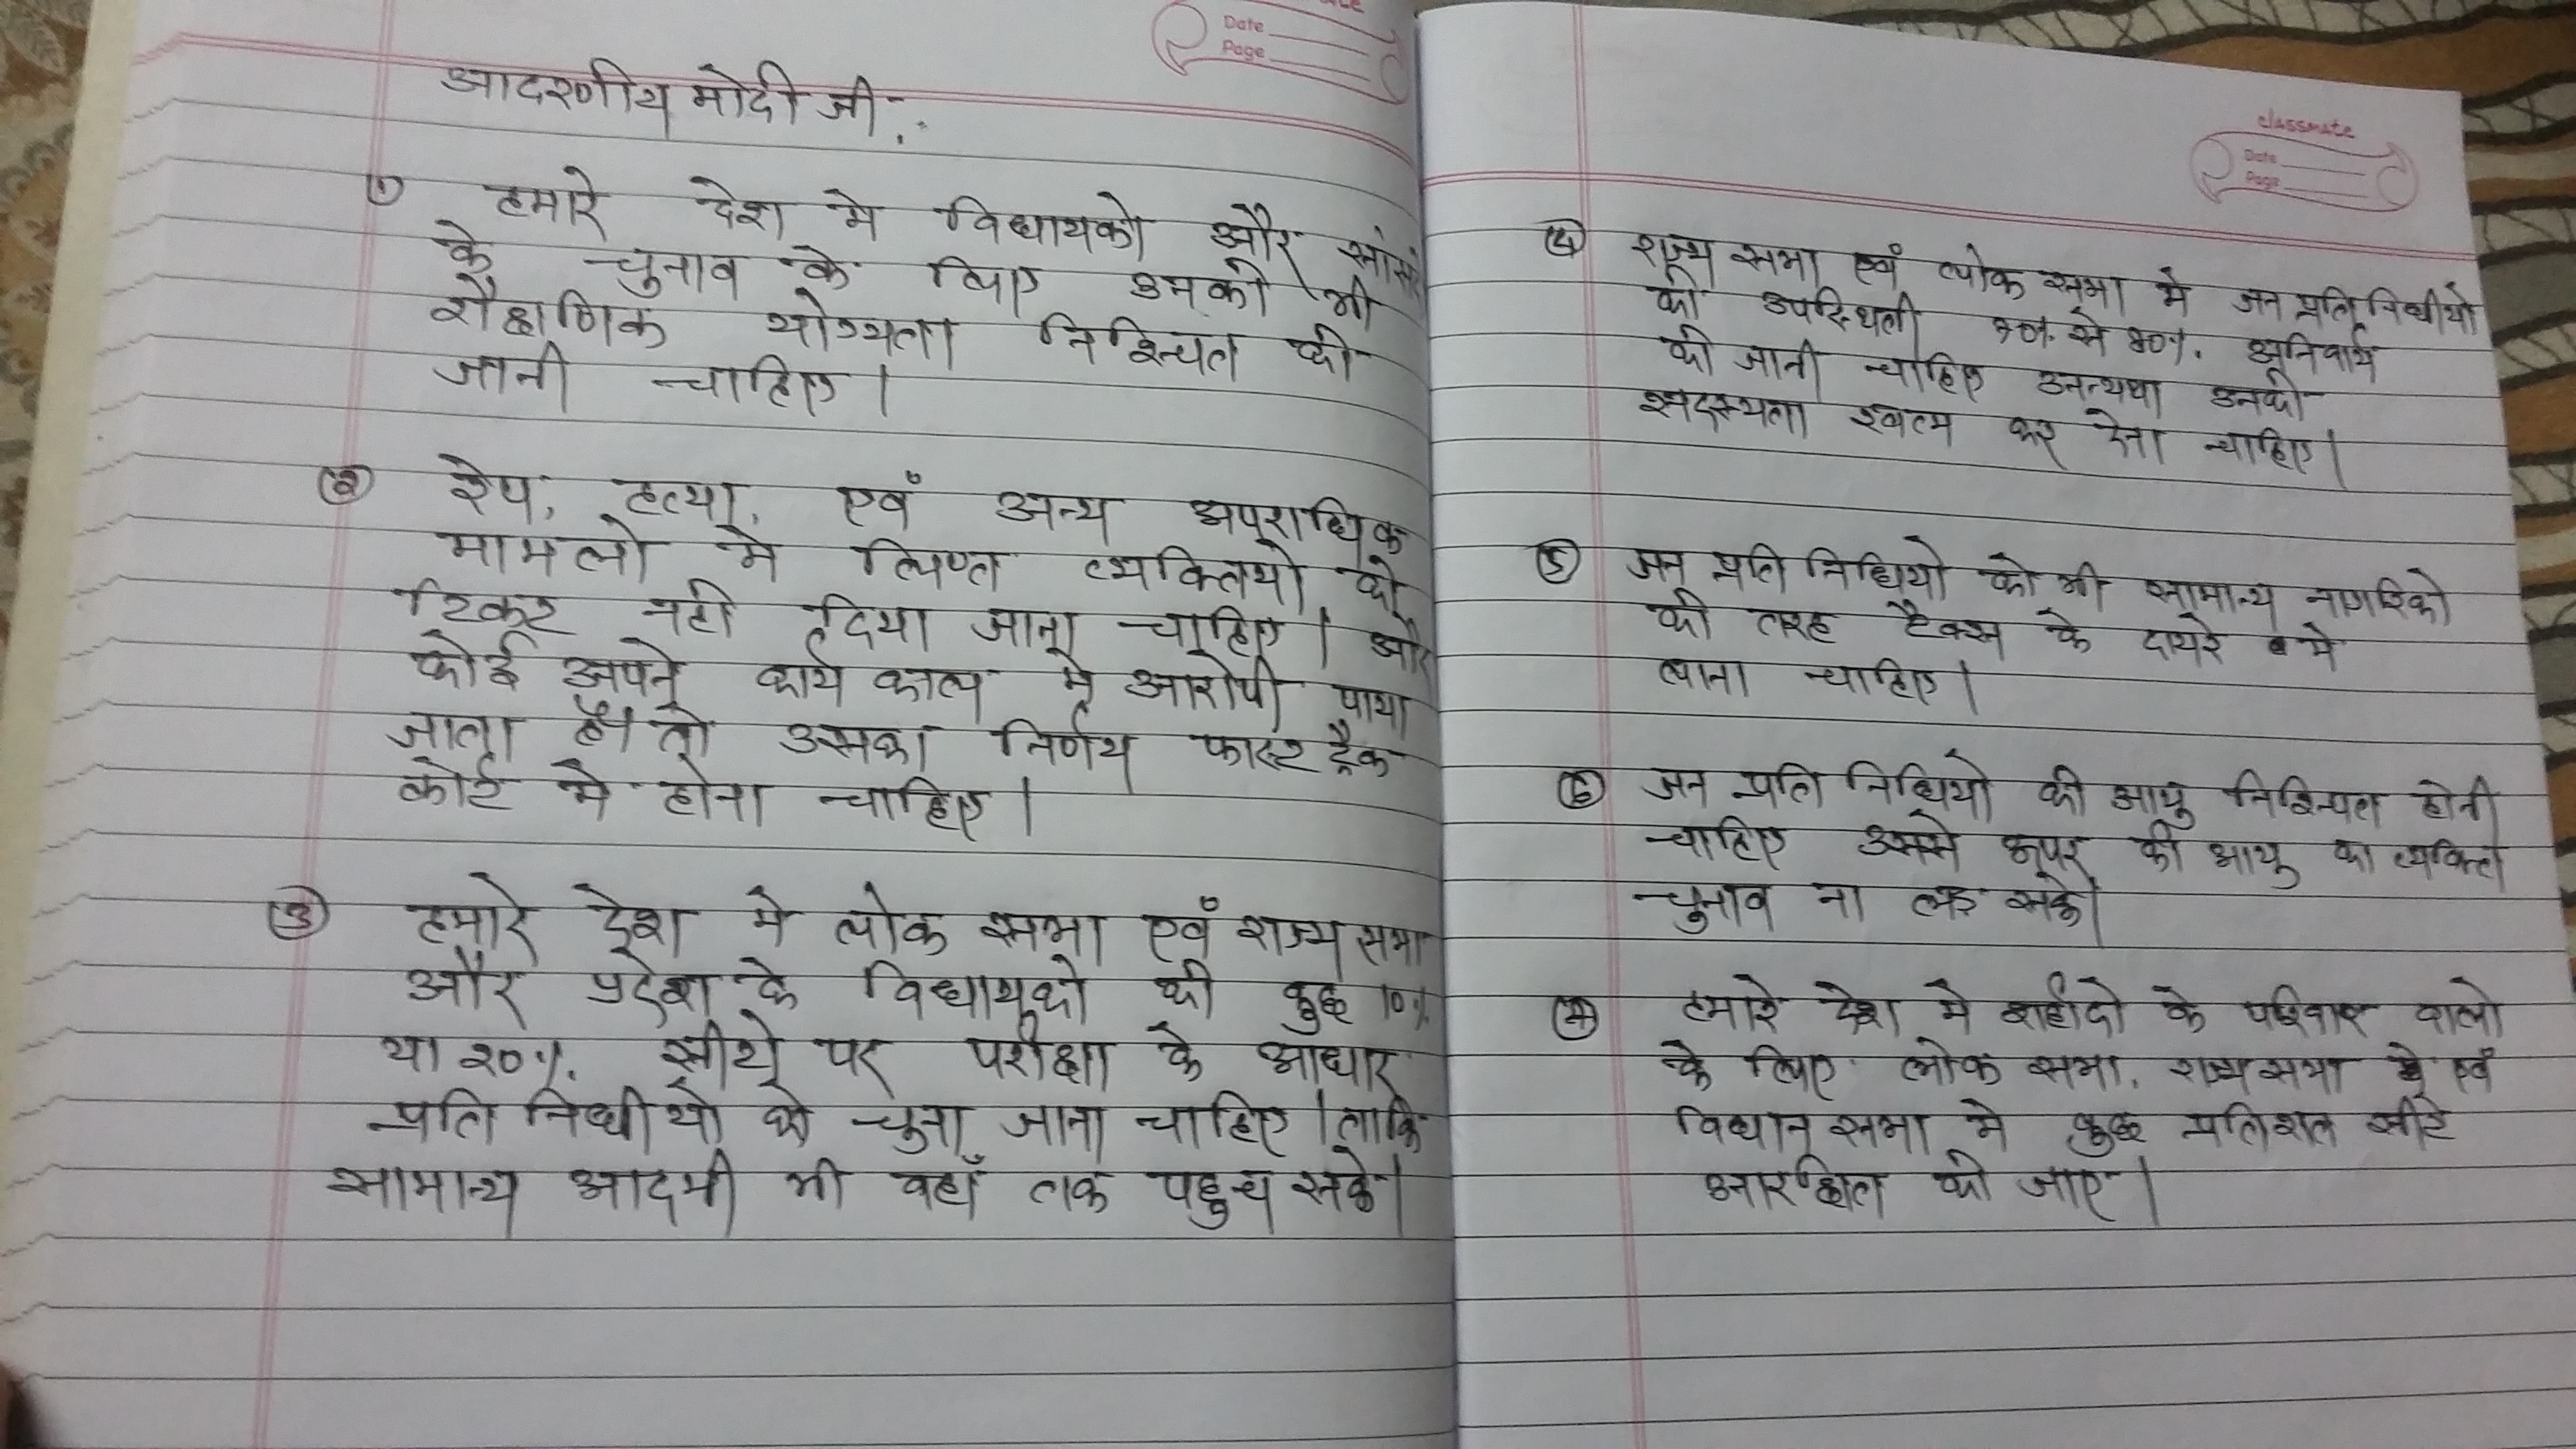 Date
Page
आदरणीय मोदी जी,:
① हमारे देश मे विधायको और सांस
के चुनाव के लिए उनकी भी
शैक्षणिक योग्यता निश्चित की
जानी चाहिए।
② रेप, हत्या, एवं अन्य अपराधिक
मामलो मे लिप्त व्यक्तियो को
टिकट नही दिया जाना चाहिए। और
कोई अपने कार्य काल मे आरोपी पाया
जाता है तो उसका निर्णय फास्ट ट्रैक
कोर्ट मे होना चाहिए।
③ हमारे देश मे लोक सभा एवं राज्य सभा
और प्रदेश के विधायको की कुछ 10%
या 20%. सीटो पर परीक्षा के आधार
प्रति निधीयो को चुना जाना चाहिए। ताकि
सामान्य आदमी भी वहाँ तक पहुच सके।
classmate
Date
Page
④ राज्य सभा एवं लोक सभा मे जन प्रति निधीयो
की उपस्थिती से अनिवार्य
की जानी चाहिए अन्यथा उनकी
सदस्यता खत्म कर देना चाहिए।
⑤ जन प्रति निधियो को भी सामान्य नागरिको
की तरह टैक्स के दायरे मे
लाना चाहिए।
⑥ जन प्रति निधियो की आयु निश्चित होनी
चाहिए उससे ऊपर की आयु का व्यक्ति
चुनाव ना लड़ सके।
हमारे देश मे शहीदो के परिवार वालो
के लिए लोक सभा, राज्य सभा एवं
विधान सभा मे कुछ प्रतिशत सीटे
आरक्षित की जाए।